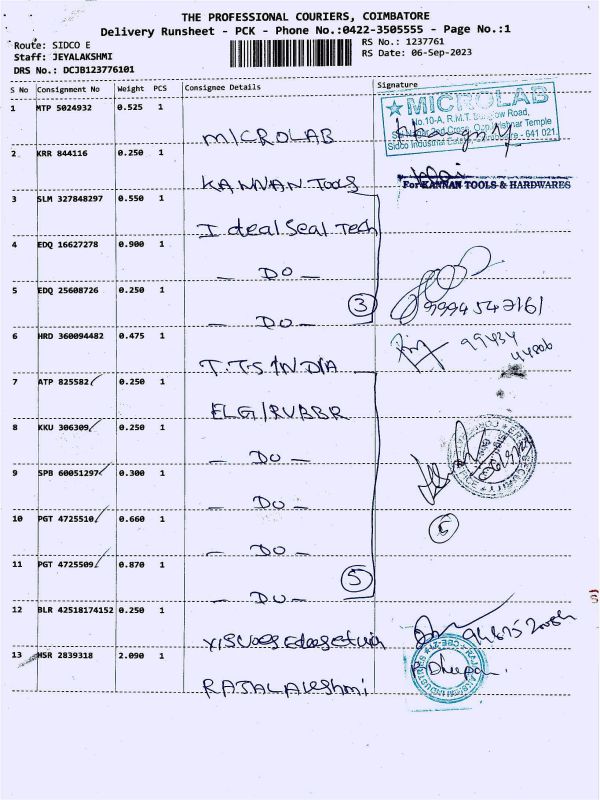 THE PROFESSIONAL COURIERS, COIMBATORE
Delivery Runsheet - PCK - Phone No.:0422-3505555 - Page No.:1
Route: SIDCO E
RS No.: 1237761
Staff: JEYALAKSHMI
RS Date: 06-Sep-2023
DRS No.: DCJB123776101
S No Consignment No Weight PCS Consignee Details Signature
1 MTP 5024932 0.525 1
MICROLAB
MICROLAB
No.10-A, R.M.T. Road,
Temple
Sidco Industrial - 641 021
2 KRR 844116 0.250 1
KANNAN TOOLS
For KANNAN TOOLS & HARDWARES
3 SLM 327848297 0.550 1
Ideal Seal Tech
4 EDQ 16627278 0.900 1
- DO -
5 EDQ 25608726 0.250 1
- DO -
3
6 HRD 360094482 0.475 1
T.T.S INDIA
99434
44806
7 ATP 825582 0.250 1
ELGI RUBBER
8 KKU 306309 0.250 1
- DO -
9 SPB 60051297 0.300 1
- DO -
10 PGT 4725510 0.660 1
- DO -
5
11 PGT 4725509 0.870 1
- DO -
5
12 BLR 42518174152 0.250 1
13 MSR 2839318 2.090 1
RAJALAKSHMI
Dheepan